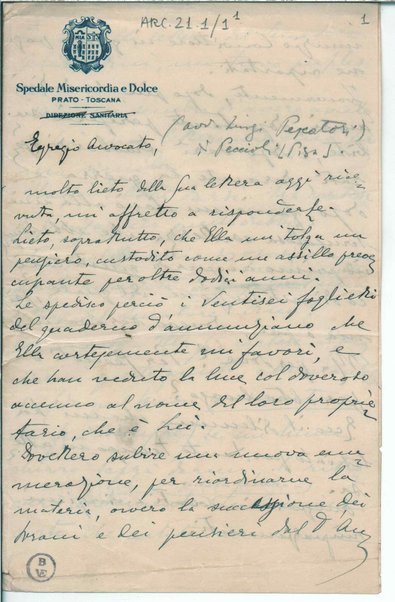 ARC. 21 1/1¹
1
Spedale Misericordia e Dolce
PRATO - TOSCANA
DIREZIONE SANITARIA
(avv. Luigi Pescatori)
Egregio Avvocato,
Peccioli (Pisa)
molto lieto della Sua lettera oggi rice=
vuta, mi affretto a risponderLe.
Lieto, soprattutto, che Ella mi tolga un
pensiero, custodito come un assillo preoc
cupante per oltre dodici anni.
Le spedisco perciò i Ventisei foglietti
del quaderno d'annunziano che
Ella cortesemente mi favorì, e
che han veduto la luce col doveroso
accenno al nome del loro proprie=
tario, che è Lei.
Dovettero subire una nuova enu=
merazione, per riordinarne la
materia, ovvero la successione dei
brani e dei pensieri dal D'An
B
VE